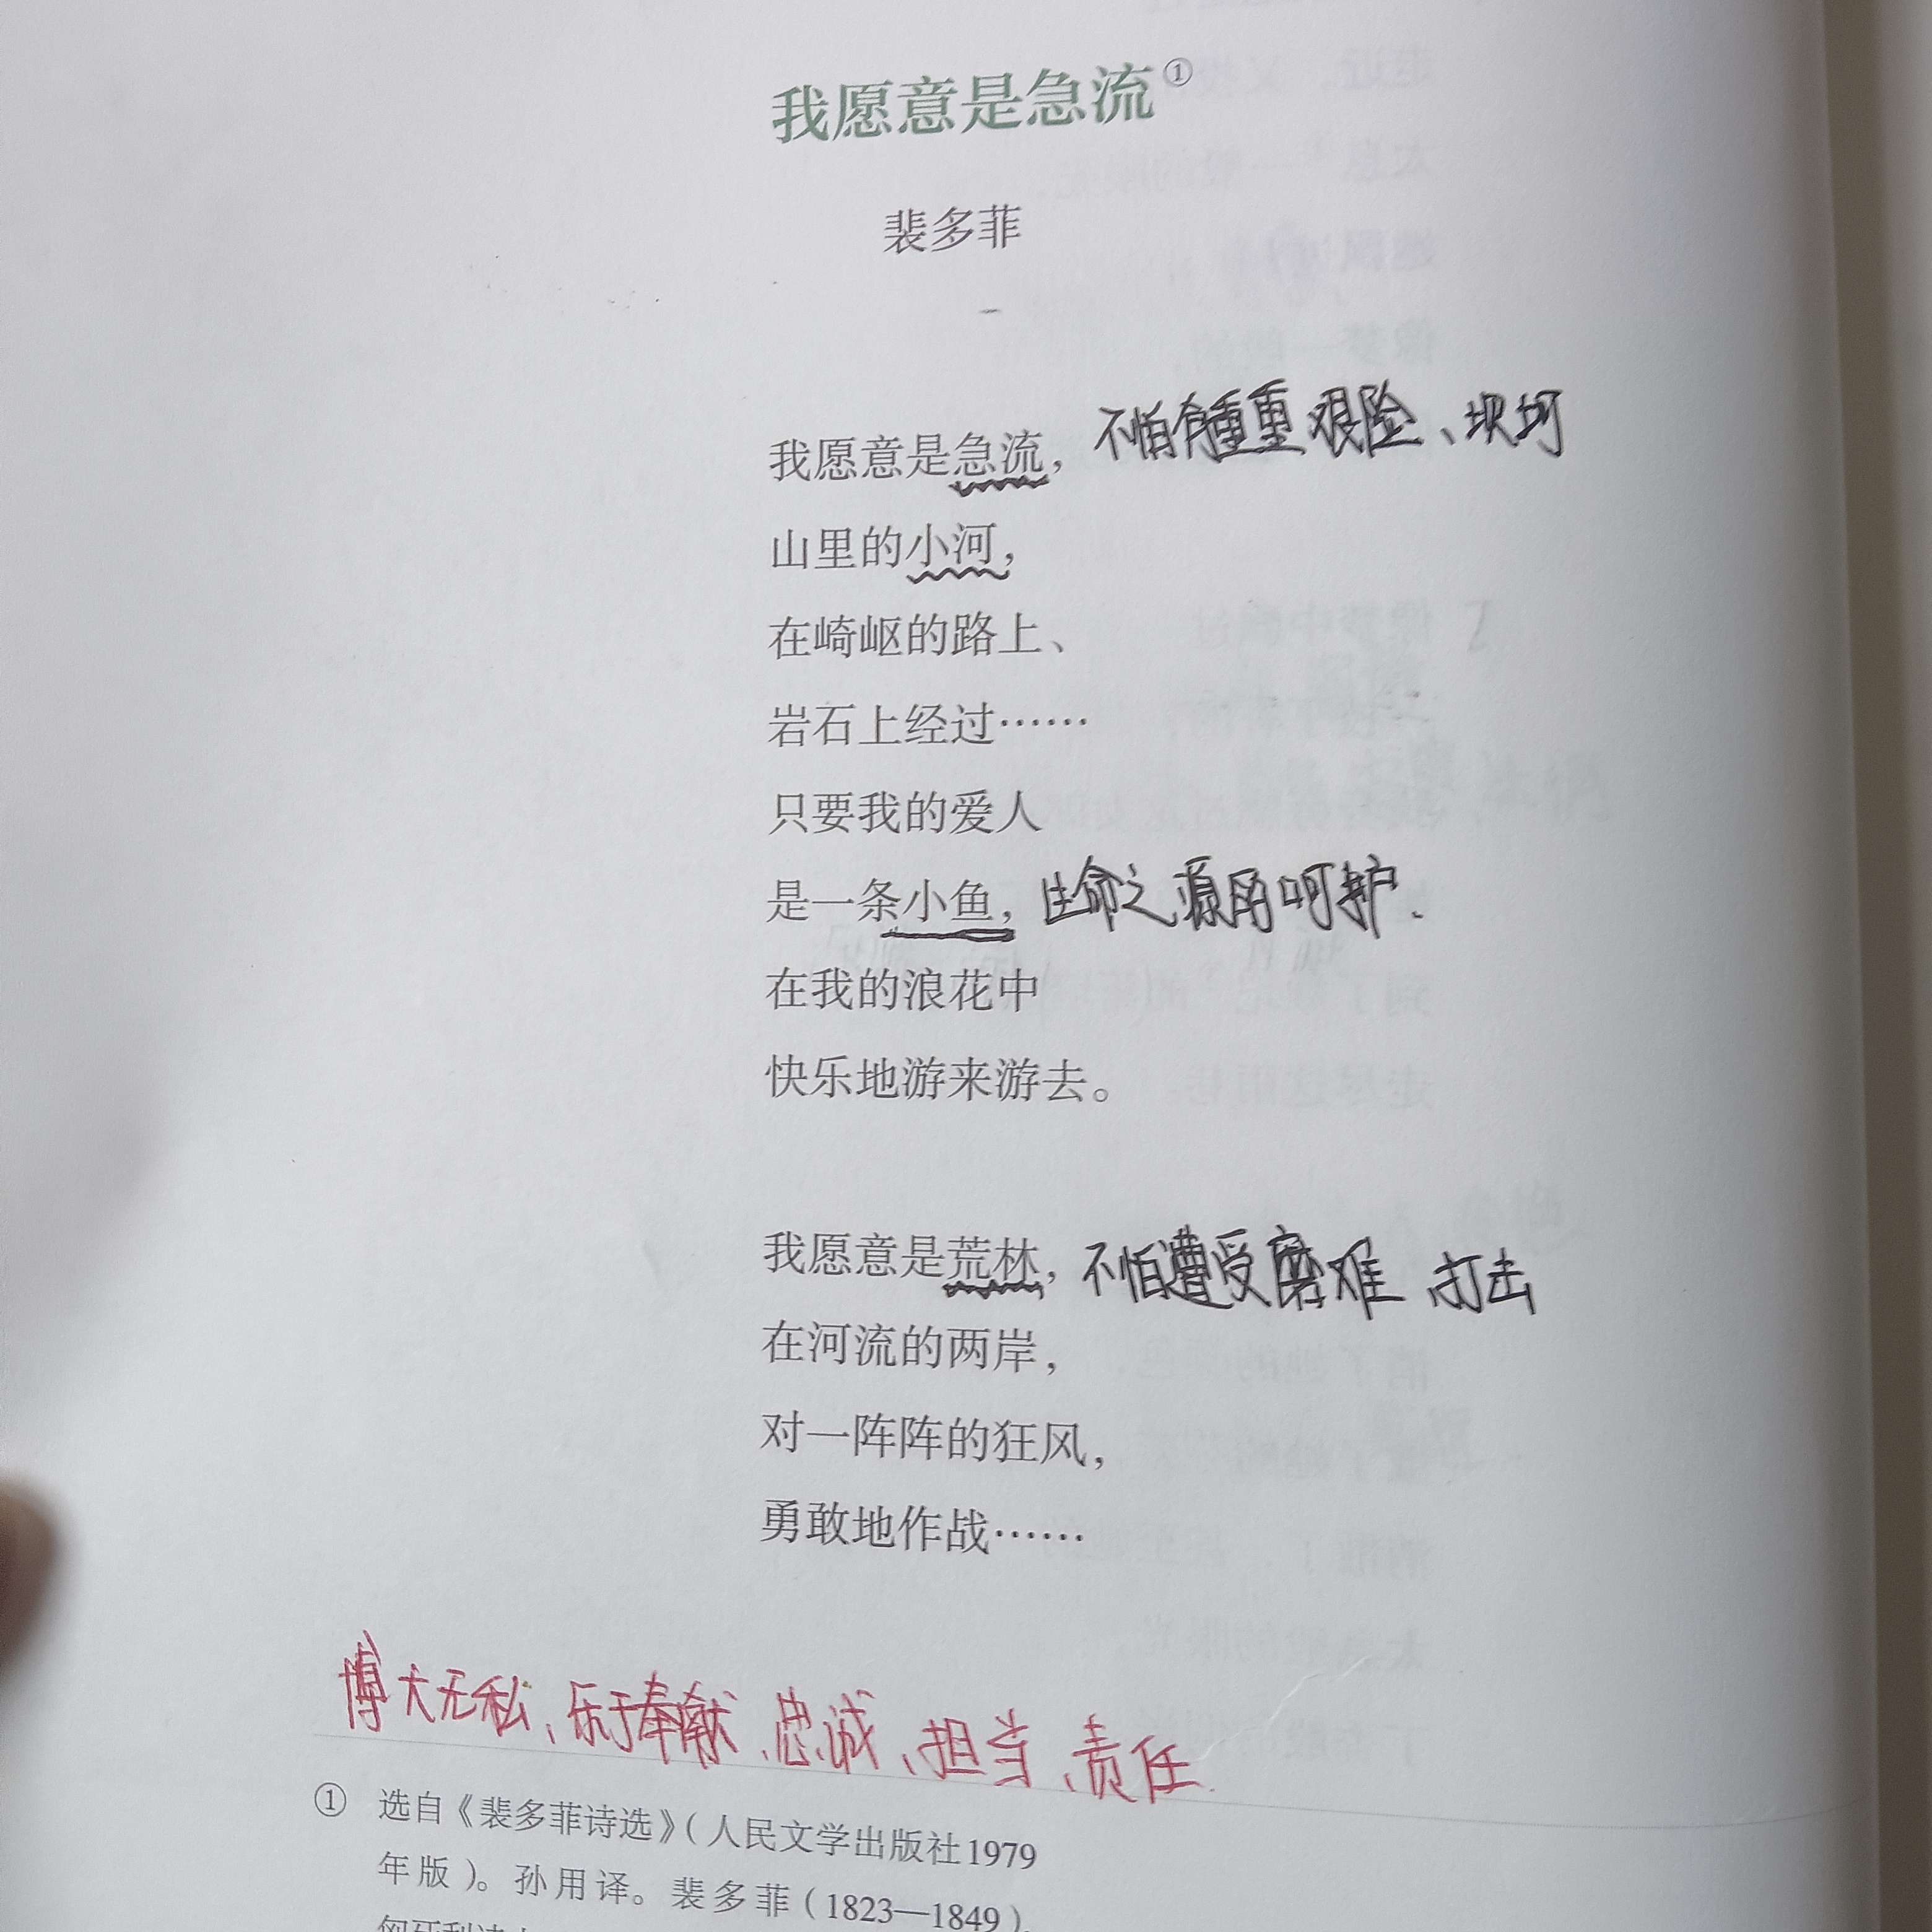 我愿意是急流①
裴多菲
我愿意是急流，不怕有重重艰险、坎坷
山里的小河，
在崎岖的路上、
岩石上经过……
只要我的爱人
是一条小鱼，生命之源用呵护.
在我的浪花中
快乐地游来游去。
我愿意是荒林，不怕遭受磨难 打击
在河流的两岸，
对一阵阵的狂风，
勇敢地作战……
博大无私、乐于奉献、忠诚、担当、责任.
① 选自《裴多菲诗选》（人民文学出版社1979
年版）。孙用译。裴多菲（1823—1849），